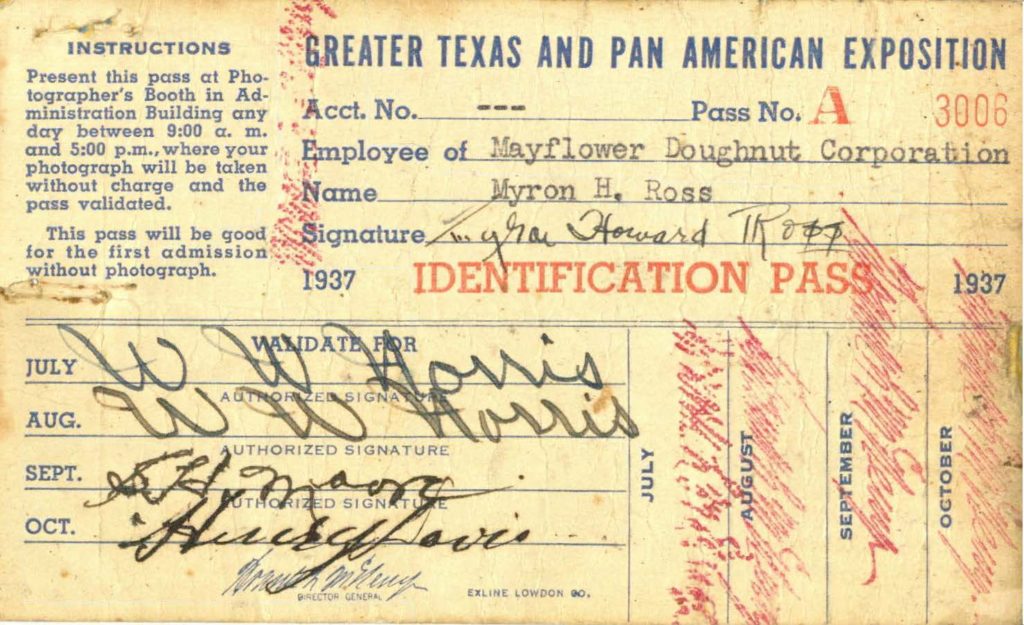 INSTRUCTIONS
Present this pass at Pho-
tographer's Booth in Ad-
ministration Building any
day between 9:00 a. m.
and 5:00 p.m., where your
photograph will be taken
without charge and the
pass validated.
This pass will be good
for the first admission
without photograph.
GREATER TEXAS AND PAN AMERICAN EXPOSITION
Acct. No. --- Pass No. A 3006
Employee of Mayflower Doughnut Corporation
Name Myron H. Ross
Signature Myron Howard Ross
1937 IDENTIFICATION PASS 1937
VALIDATE FOR
JULY W W Horris
AUTHORIZED SIGNATURE
AUG. W W Horris
AUTHORIZED SIGNATURE
SEPT. S.H. Moore
AUTHORIZED SIGNATURE
OCT. Henry Davis
DIRECTOR GENERAL
EXLINE LOWDON CO.
JULY
AUGUST
SEPTEMBER
OCTOBER